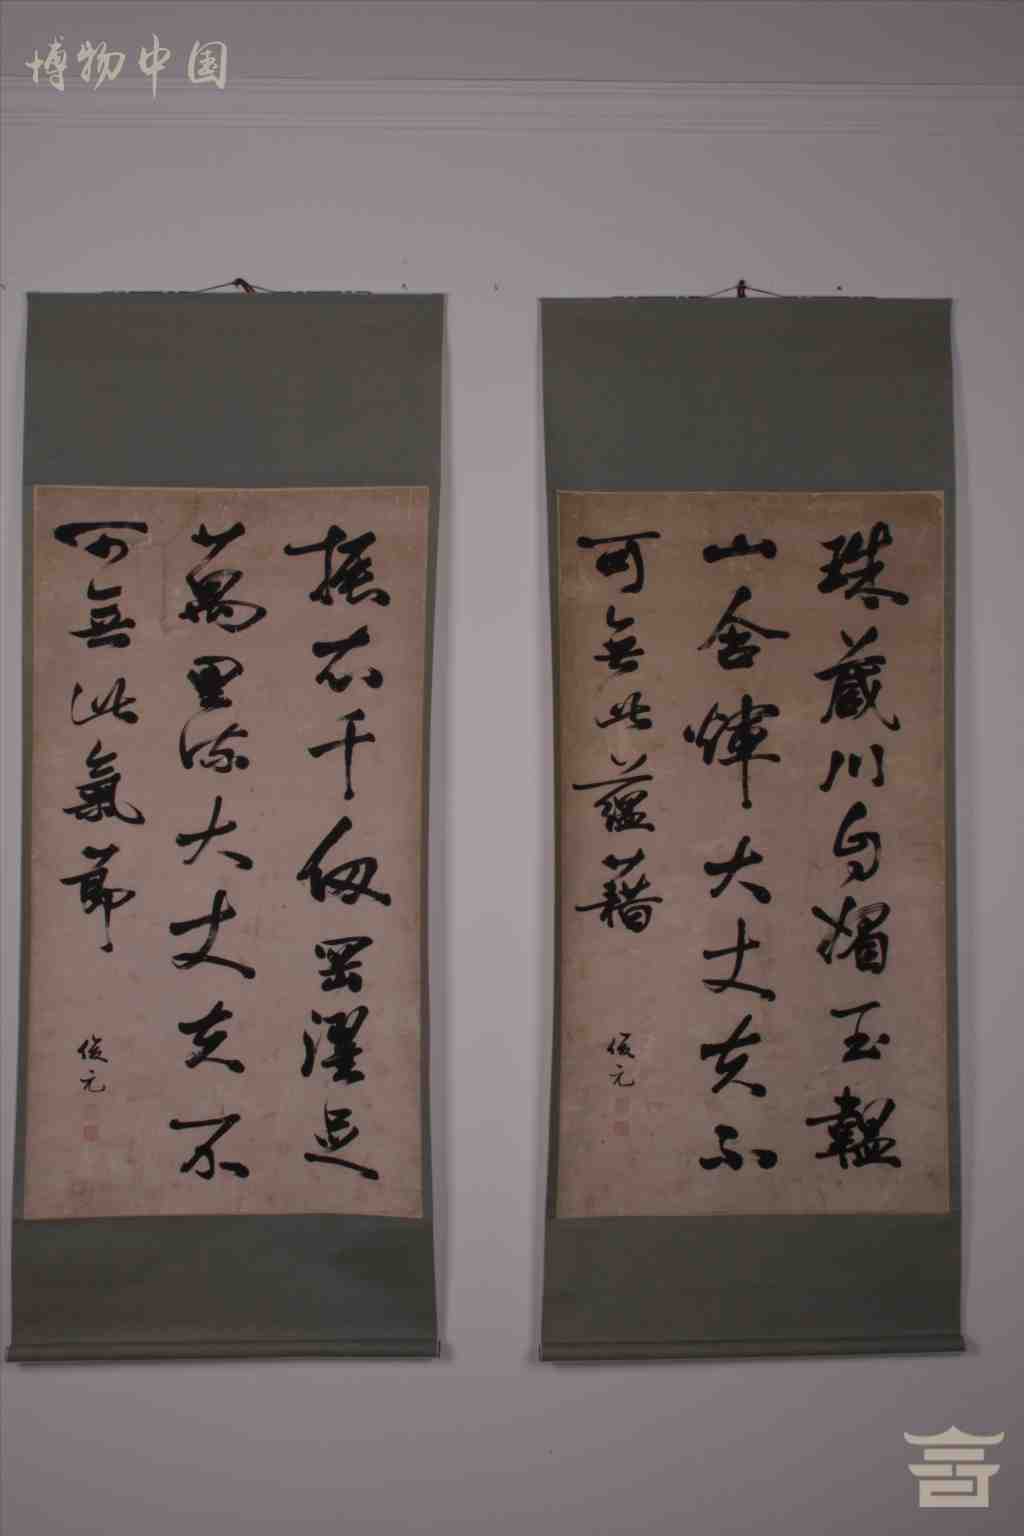 博物中国
珠藏川自媚玉韞
山含煇大丈夫不
可無此蘊藉
俊元
振衣千仞岡濯足
萬里流大丈夫不
可無此氣節
俊元